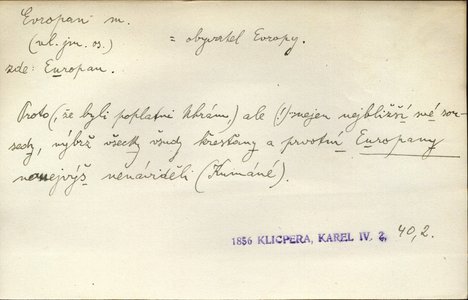 Evropan m.
(vl. jm. os.) = obyvatel Evropy.
zde: Europan.
Proto (, že byli poplatni chrámu,) ale (!) nejen nejbližší své sou-
sedy, nýbrž všecky vsudy křesťany a prvotní Europany
nanejvýš nenáviděli (Kumáné).
1856 KLICPERA, KAREL IV. 2, 40,2.